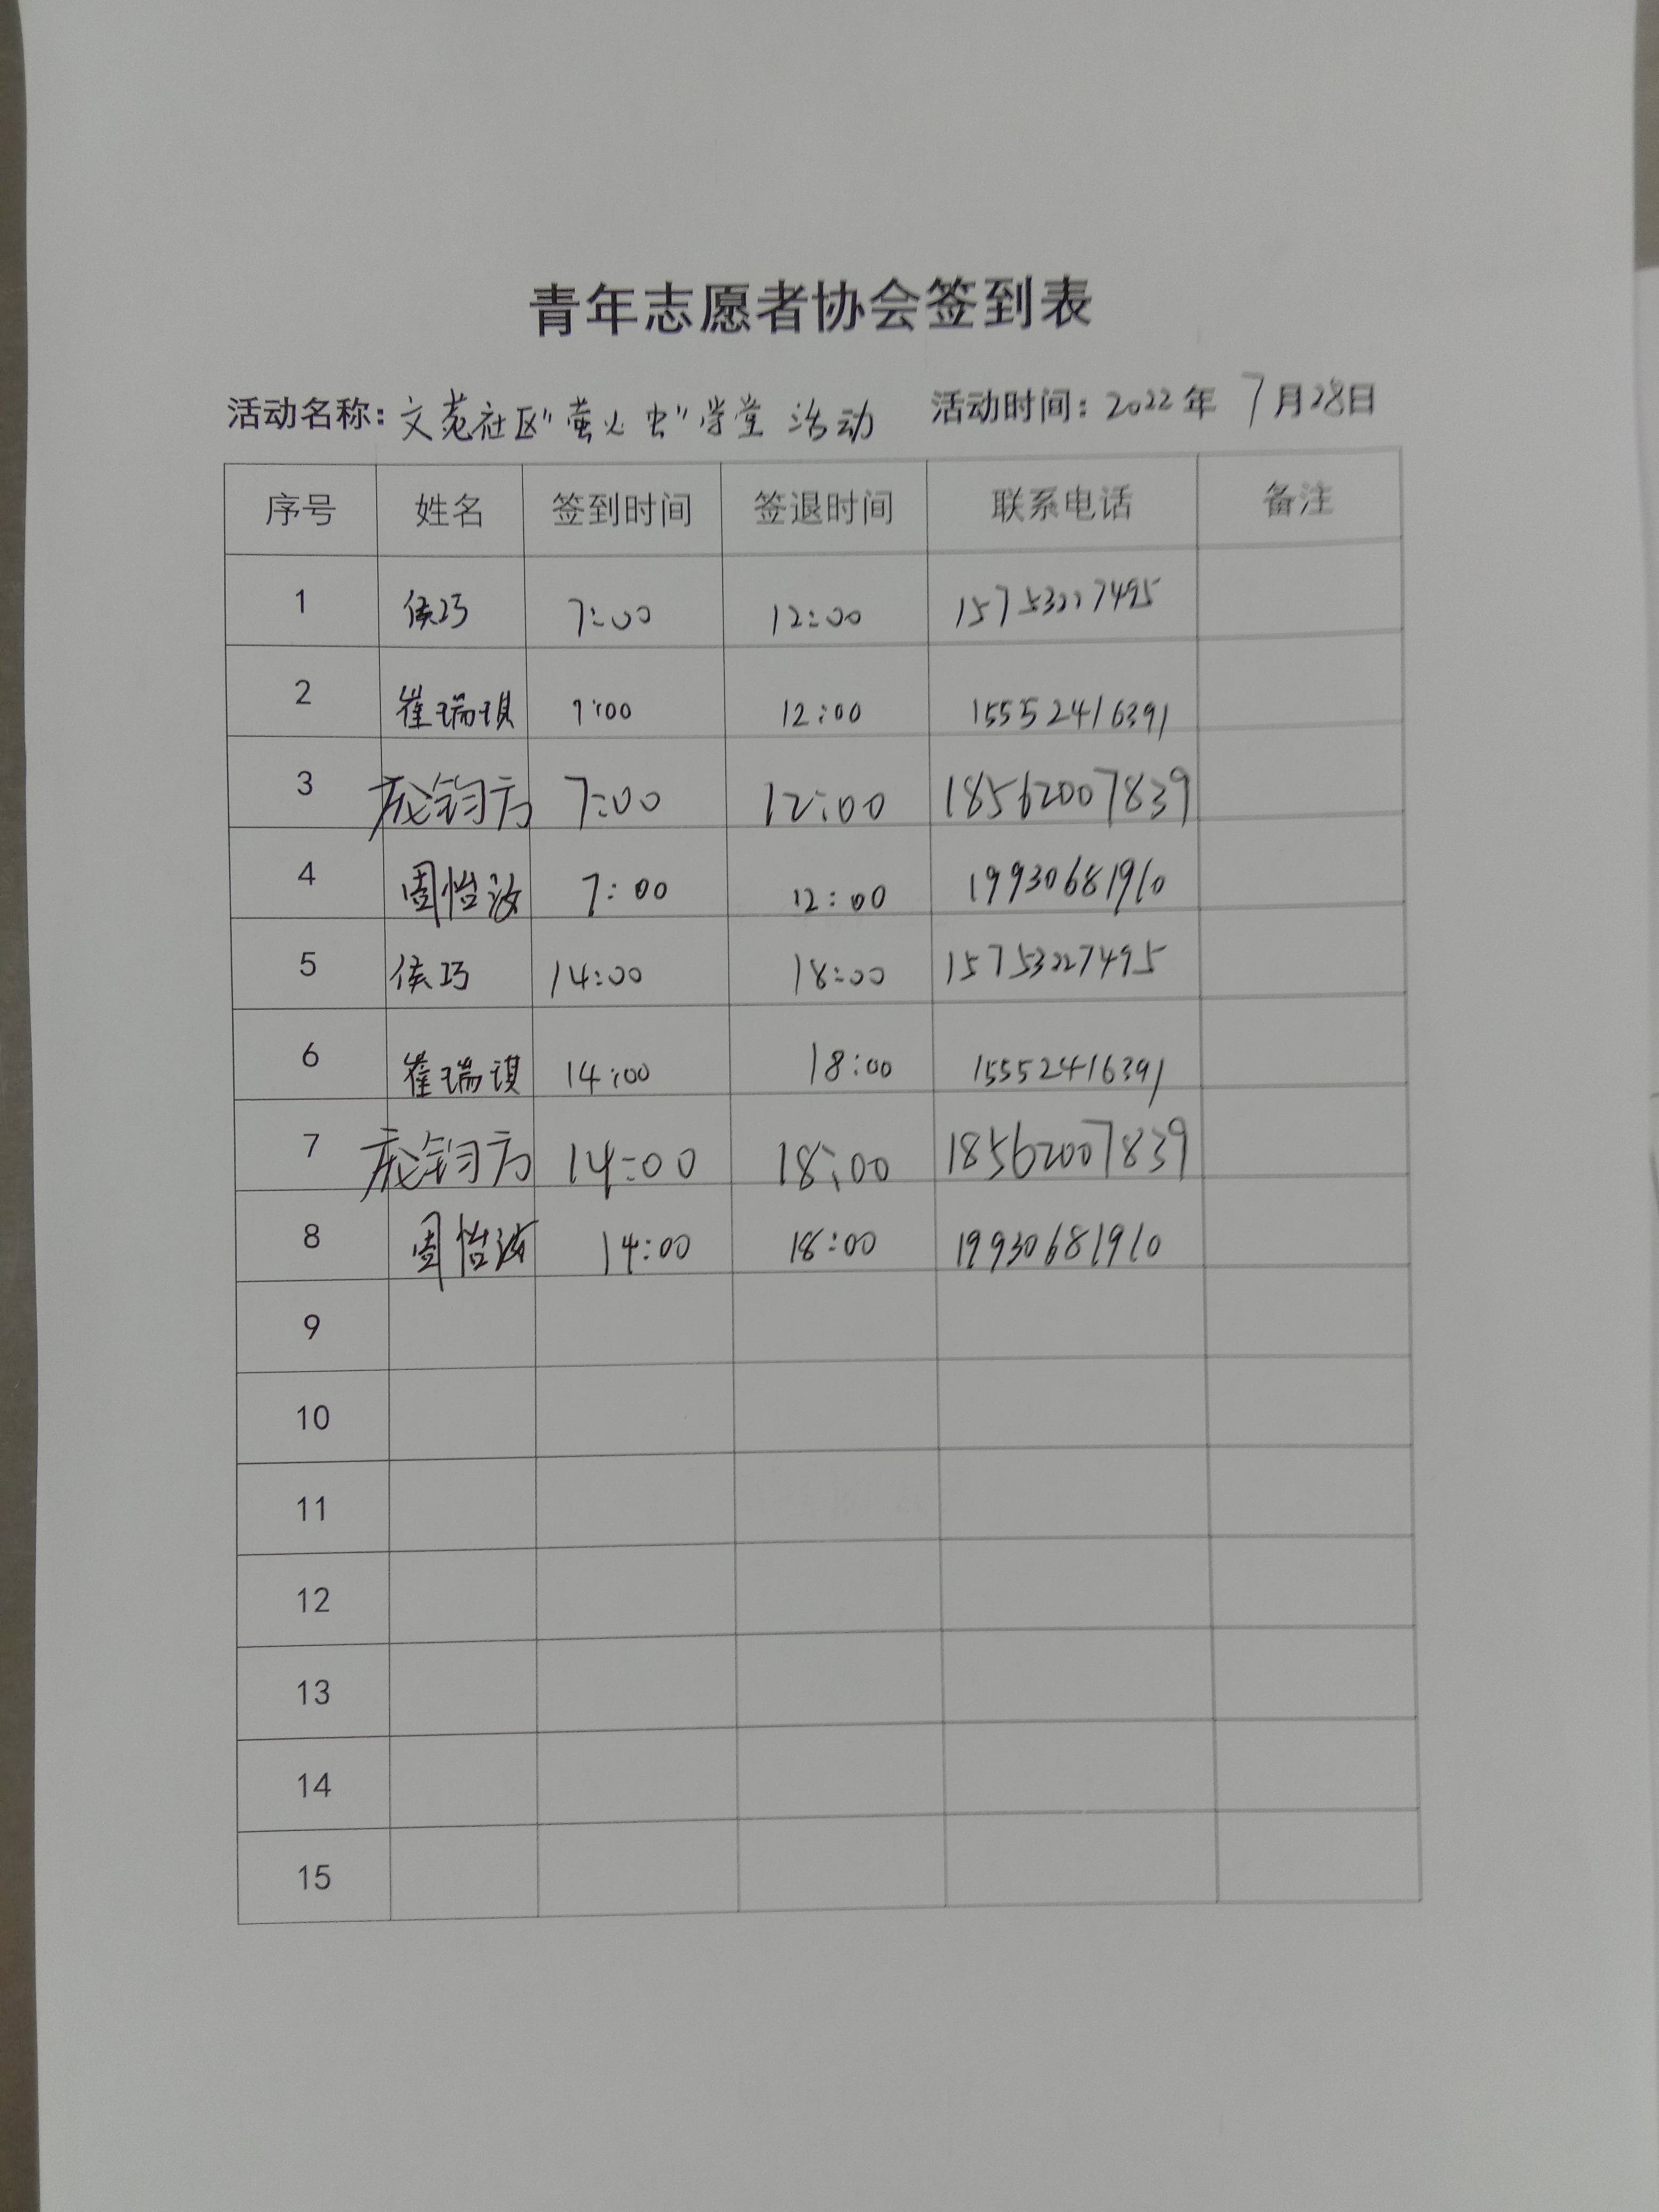 青年志愿者协会签到表
活动名称：文苑社区“萤火虫”学堂 活动 活动时间：2022年 7月28日
序号 姓名 签到时间 签退时间 联系电话 备注
1 侯巧 7:00 12:00 15753227495
2 崔瑞琪 7:00 12:00 15552416391
3 庞钧方 7:00 12:00 18562007839
4 周怡汝 7:00 12:00 19930681910
5 侯巧 14:00 18:00 15753227495
6 崔瑞琪 14:00 18:00 15552416391
7 庞钧方 14:00 18:00 18562007839
8 周怡汝 14:00 18:00 19930681910
9
10
11
12
13
14
15